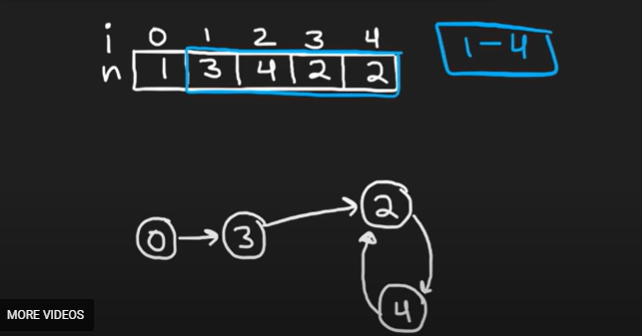 i 0 1 2 3 4
n 1 3 4 2 2
1-4
0 3 2
4
MORE VIDEOS